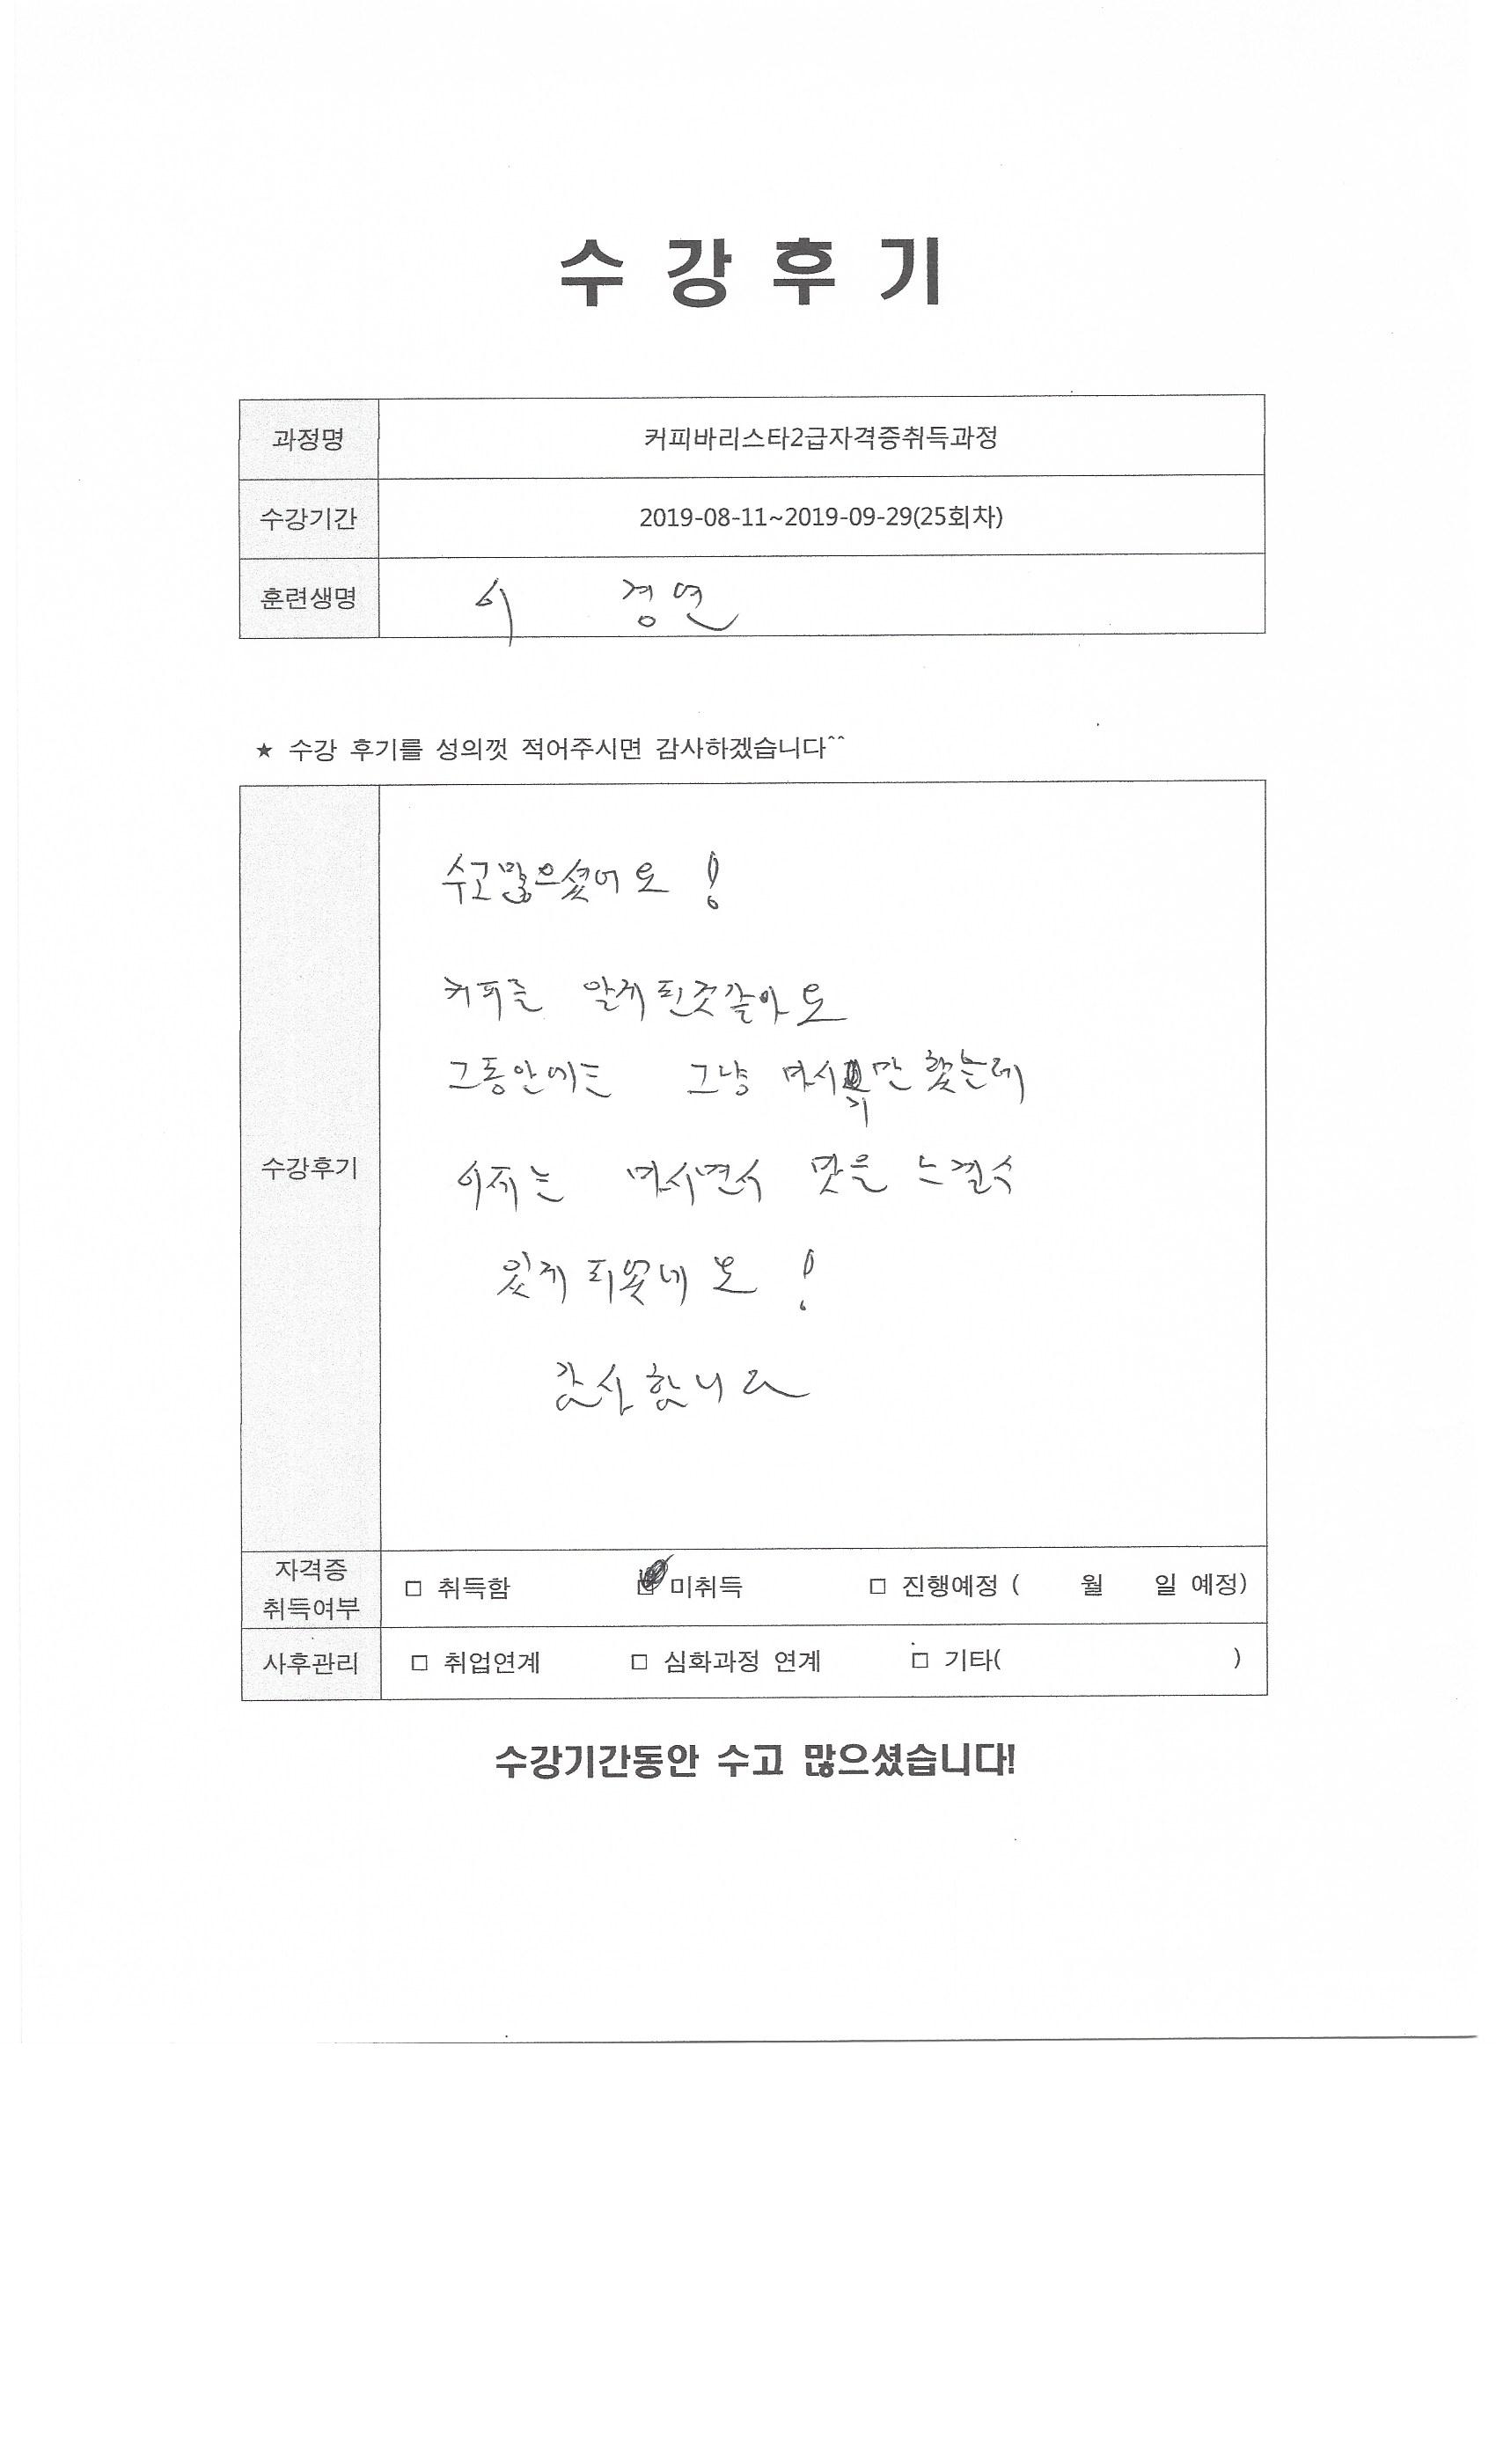 수 강 후 기
과정명 커피바리스타2급자격증취득과정
수강기간 2019-08-11~2019-09-29(25회차)
훈련생명 이 경연
★ 수강 후기를 성의껏 적어주시면 감사하겠습니다^^
수고많으셨어요 !
커피를 알게된것같아요
그동안에는 그냥 마시기만 했는데
수강후기
이제는 마시면서 맛을 느낄수
있게 되었네요 !
감사합니다
자격증
취득여부
□ 취득함 □ 미취득 □ 진행예정 ( 월 일 예정)
사후관리 □ 취업연계 □ 심화과정 연계 □ 기타( )
수강기간동안 수고 많으셨습니다!